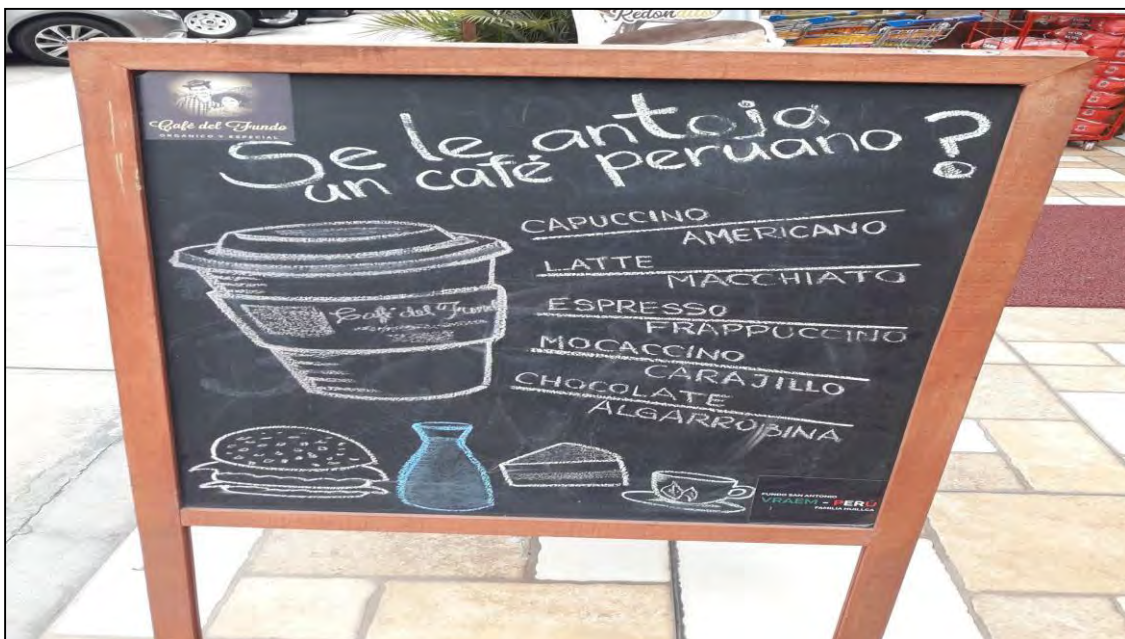 Redondos
Café del Fundo
ORGÁNICO Y ESPECIAL
Se le antoja
un café peruano ?
CAPUCCINO
AMERICANO
LATTE
MACCHIATO
ESPRESSO
FRAPPUCCINO
MOCACCINO
CARAJILLO
CHOCOLATE
ALGARROBINA
Café del Fundo
FUNDO SAN ANTONIO
VRAEM - PERÚ
FAMILIA HUILLCA